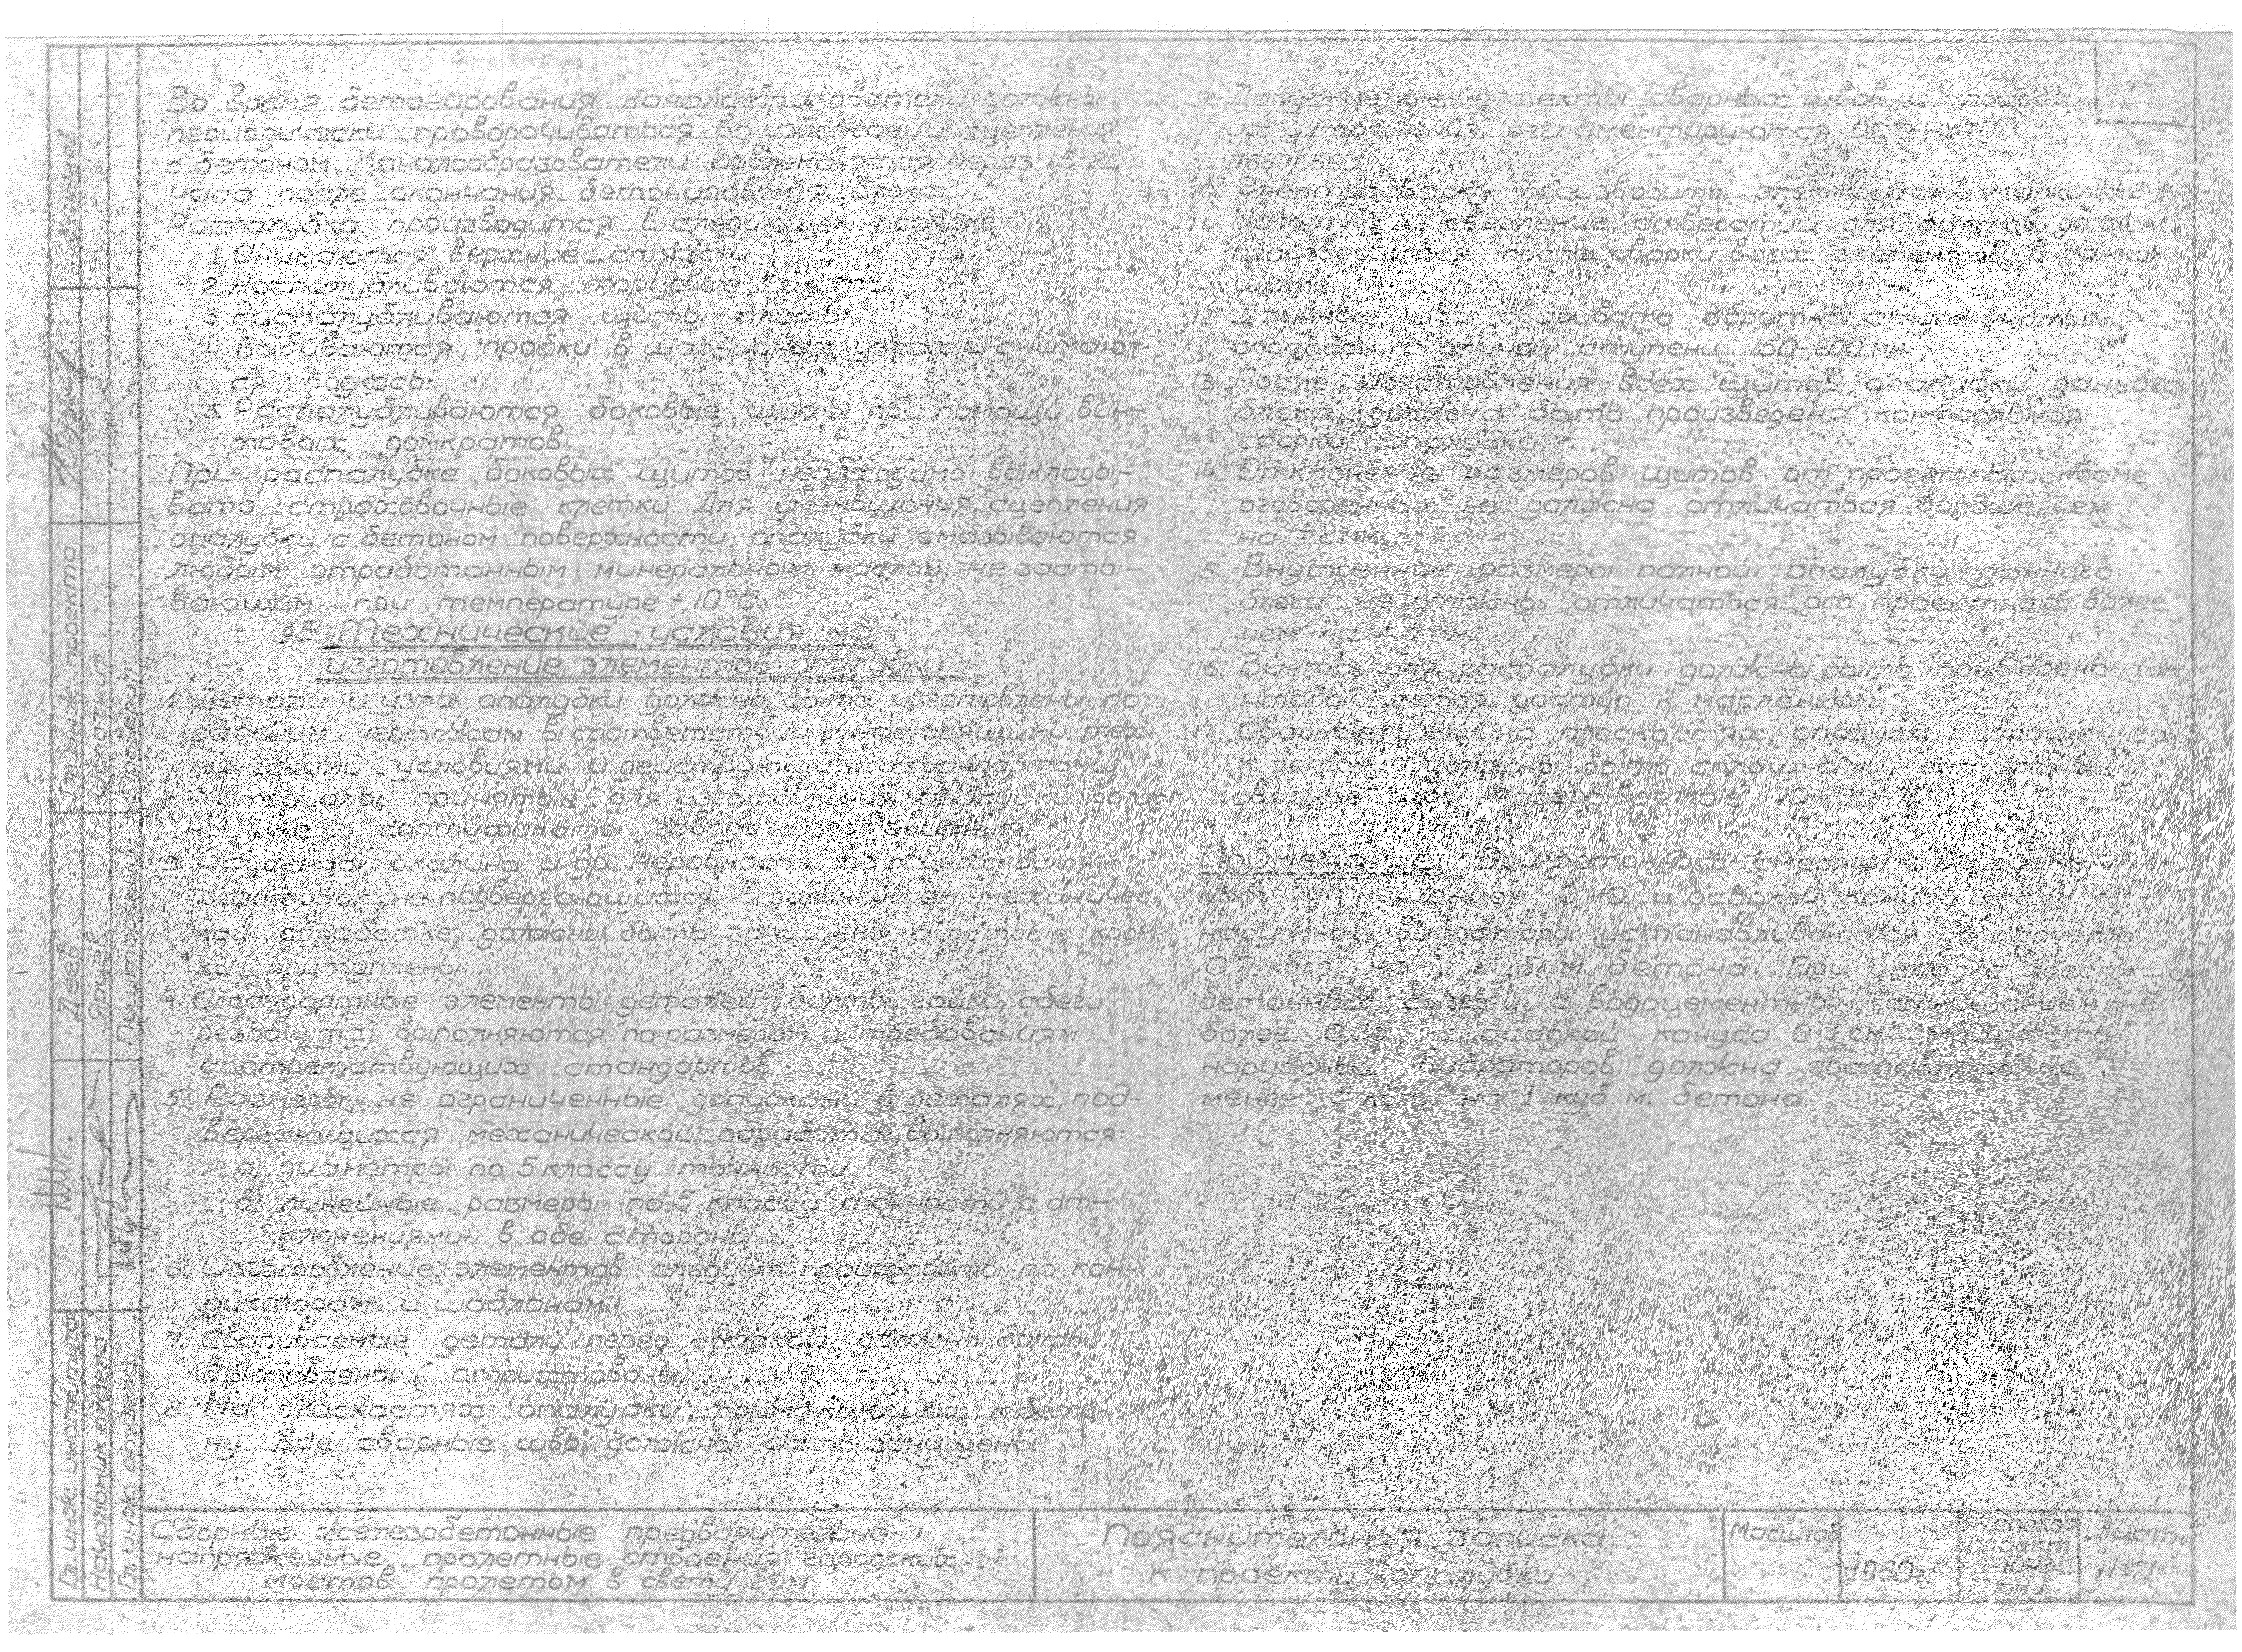 Во время бетонирования каналообразователи должны
периодически проворачиваться во избежании сцепления
с бетоном. Каналообразователи извлекаются через 1.5-2.0
часа после окончания бетонирования блока.
Распалубка производится в следующем порядке
1. Снимаются верхние стяжки
2. Распалубливаются торцевые щиты
3. Распалубливаются щиты плиты
4. Выбиваются пробки в шарнирных узлах и снимают-
ся подкосы.
5. Распалубливаются боковые щиты при помощи вин-
товых домкратов.
При распалубке боковых щитов необходимо выклады-
вать страховочные клетки. Для уменьшения сцепления
опалубки с бетоном поверхности опалубки смазываются
любым отработанным минеральным маслом, не засты-
вающим при температуре + 10°С.
§5 Технические условия на
изготовление элементов опалубки
1 Детали и узлы опалубки должны быть изготовлены по
рабочим чертежам в соответствии с настоящими тех-
ническими условиями и действующими стандартами.
2. Материалы, принятые для изготовления опалубки долж-
ны иметь сертификаты завода-изготовителя.
3. Заусенцы, окалина и др. неровности по поверхностям
заготовок, не подвергающихся в дальнейшем механичес-
кой обработке, должны быть зачищены, а острые кром-
ки притуплены.
4. Стандартные элементы деталей (болты, гайки, сбеги
резьб и т.д.) выполняются по размерам и требованиям
соответствующих стандартов.
5. Размеры, не ограниченные допусками в деталях, под-
вергающихся механической обработке, выполняются:
а) диаметры по 5 классу точности
б) линейные размеры по 5 классу точности с от-
клонениями в обе стороны
6. Изготовление элементов следует производить по кон-
дукторам и шаблонам.
7. Свариваемые детали перед сваркой должны быть
выправлены (отрихтованы)
8. На плоскостях опалубки, примыкающих к бето-
ну все сварные швы должны быть зачищены
9. Допускаемые дефекты сварных швов и способы
их устранения регламентируются ОСТ-НКТП
7687/663
10. Электросварку производить электродами марки Э-42
11. Наметка и сверление отверстий для болтов должны
производиться после сварки всех элементов в данном
щите.
12. Длинные швы сваривать обратно ступенчатым
способом с длиной ступени 150-200 мм.
13. После изготовления всех щитов опалубки данного
блока должна быть произведена контрольная
сборка опалубки.
14. Отклонение размеров щитов от проектных кроме
оговоренных, не должно отличаться больше, чем
на ± 2 мм.
15. Внутренние размеры полной опалубки данного
блока не должны отличаться от проектных более
чем на ± 5 мм.
16. Винты для распалубки должны быть приварены так
чтобы имелся доступ к маслёнкам
17. Сварные швы на плоскостях опалубки, обращенных
к бетону, должны быть сплошными, остальные
сварные швы - прерываемые 70÷100÷70.
Примечание: При бетонных смесях с водоцемент-
ным отношением 0.40 и осадкой конуса 6-8 см.
наружные вибраторы устанавливаются из расчета
0,7 квт. на 1 куб. м. бетона. При укладке жестких
бетонных смесей с водоцементным отношением не
более 0.35, с осадкой конуса 0-1 см. мощность
наружных вибраторов должна составлять не
менее 5 квт. на 1 куб. м. бетона.
Гл. инж. института
Начальник отдела
Гл. инж. отдела
Деев
Ярцев
Пушторский
Гл. инж. проекта
Исполнил
Проверил
Сборные железобетонные предварительно-
напряженные пролетные строения городских
мостов пролетом в свету 20м
Пояснительная записка
к проекту опалубки
Масштаб
1960г.
Типовой
проект
Т-1043
Том I
Лист